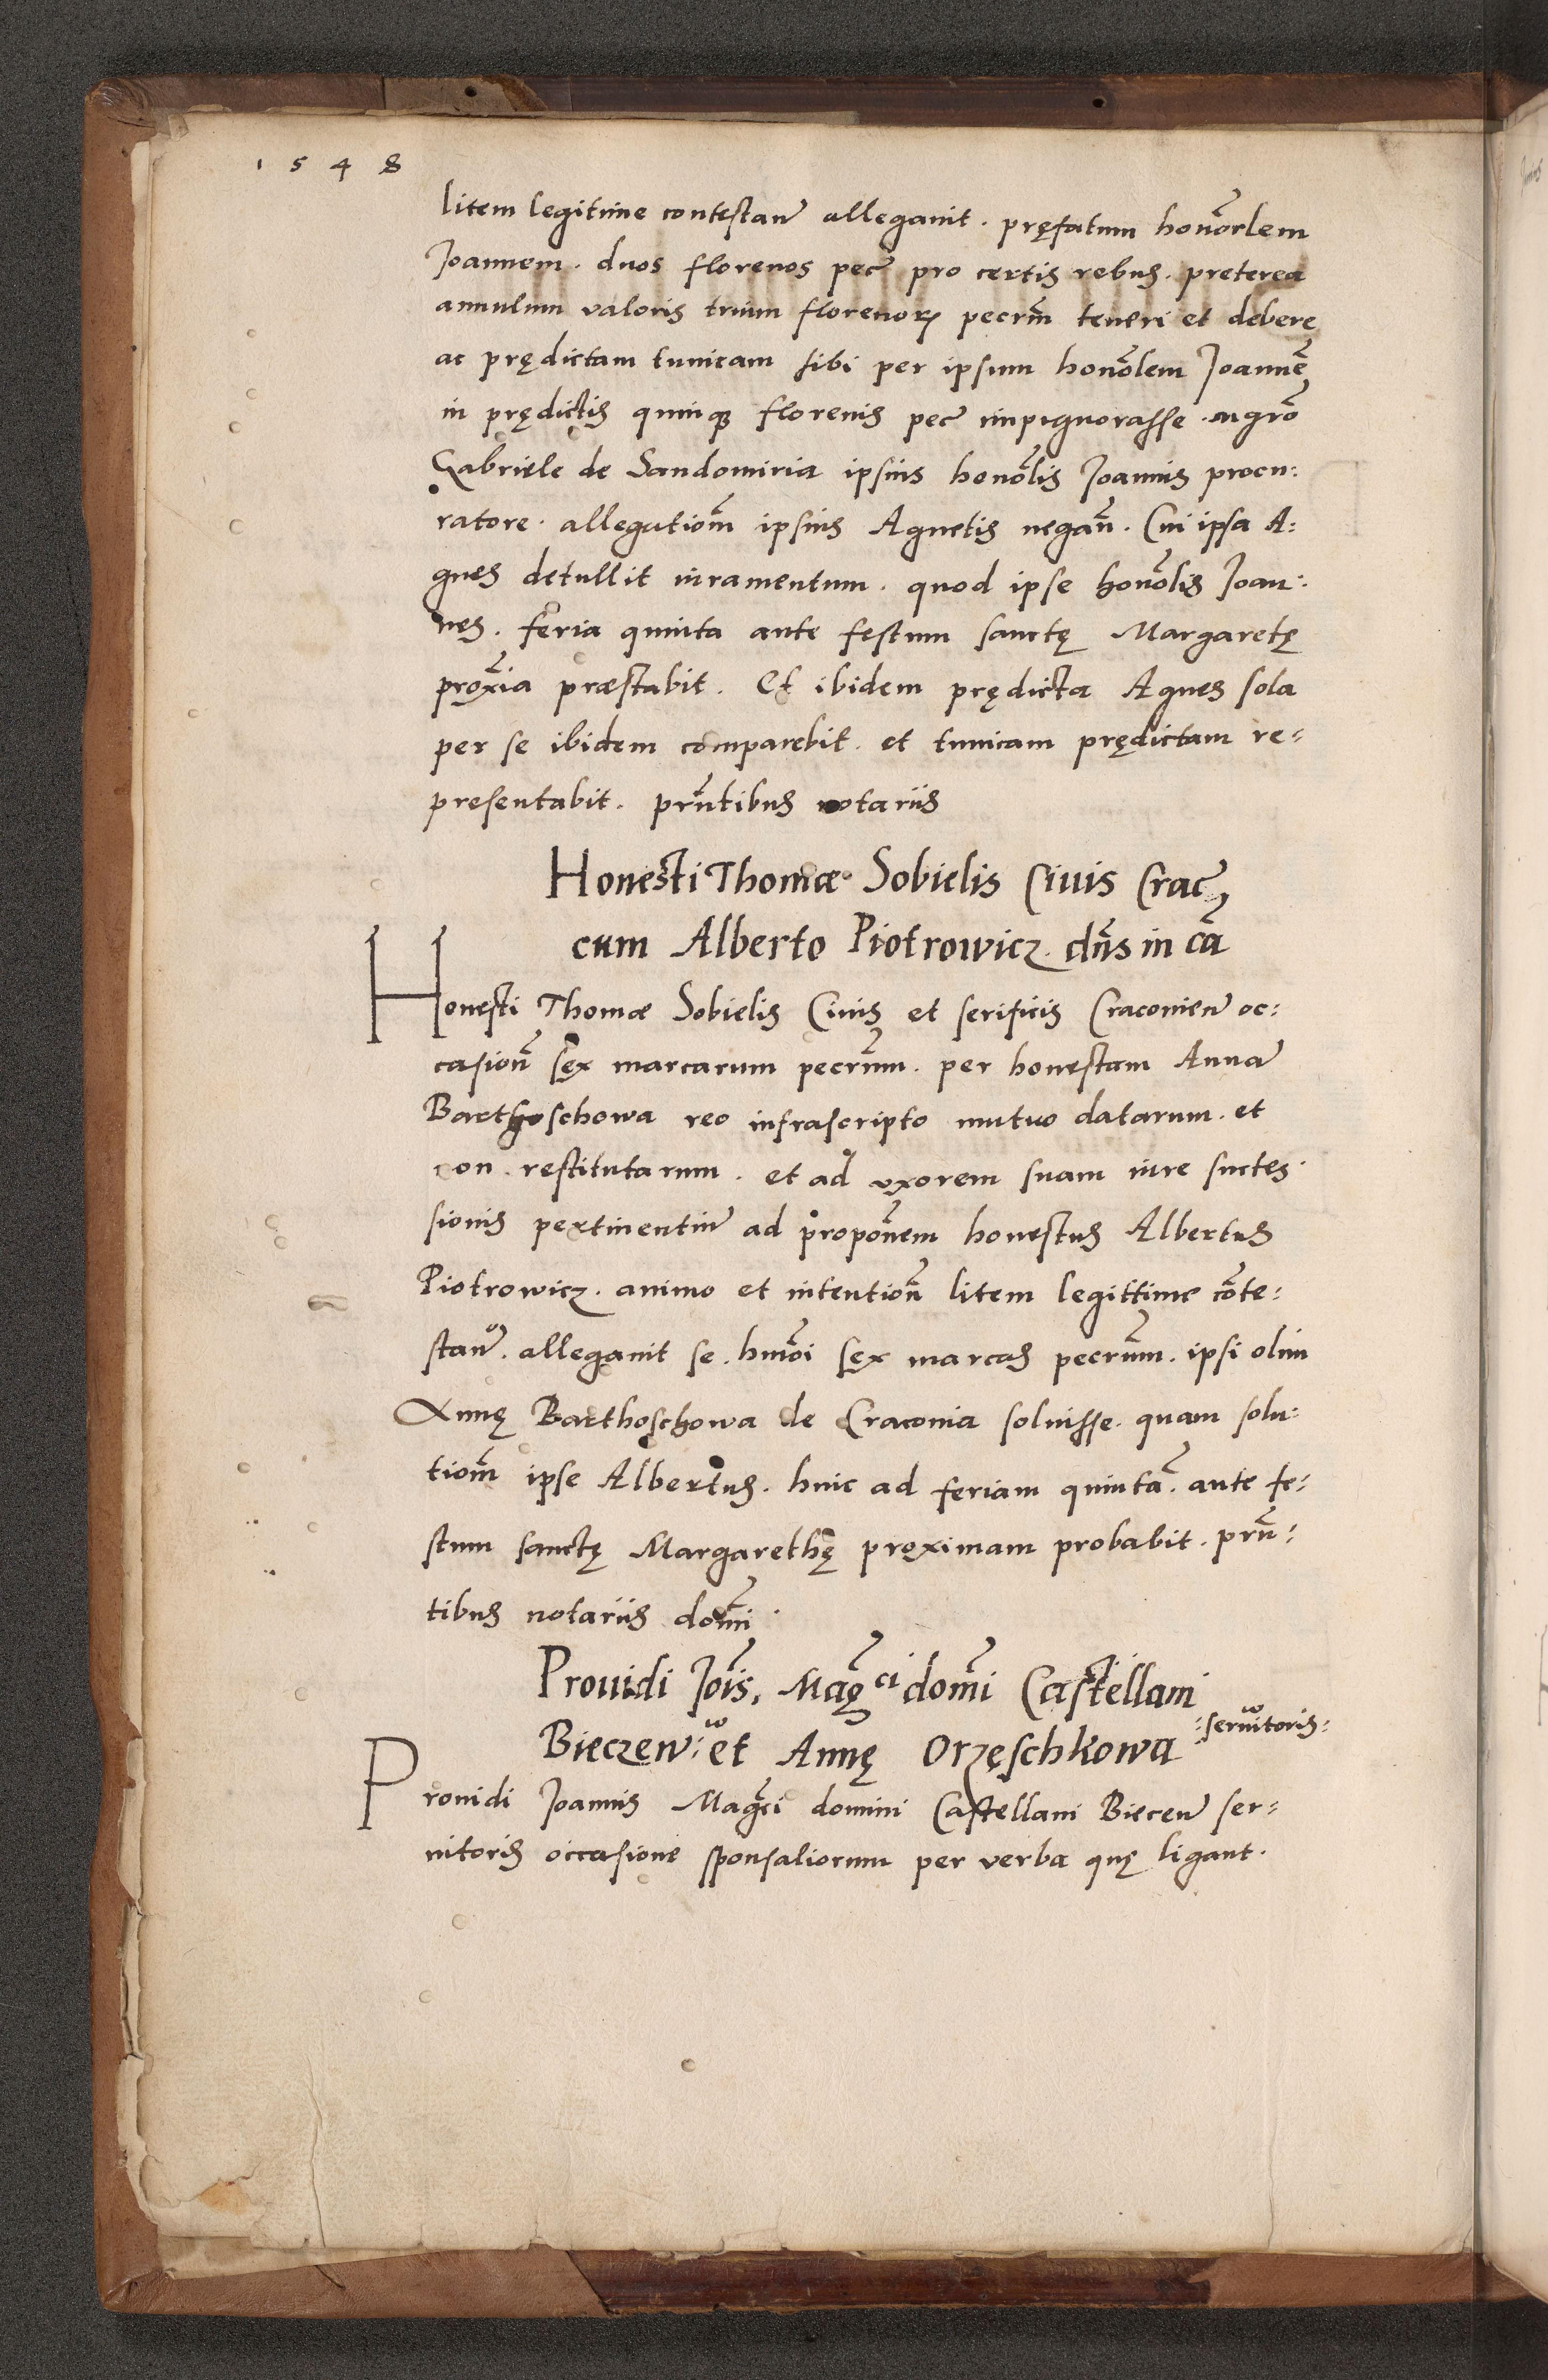 1548
litem legitime contestan̄ allegauit. pręfatum honor̄lem
Joannem. duos florenos pec̄ pro certis rebus. preterea
annulum valoris trium florenoꝝ pecrm̄ teneri et debere
ac prędictam tunicam sibi per ipsum honor̄lem Joannē
in prędictis quinqꝫ florenis pec̄ impignorasse. mgrō
Gabriele de Sandomiria ipsius honōlis Joannis procu:
ratore. allegationm̄ ipsius Agnetis negan̄. Cui ipsa A:
gnes detullit iuramentum. quod ipse honōlis Joan:
nes. feria quinta ante festum sanctę Margaretę
prox̄ia præstabit. Et ibidem prędicta Agnes sola
per se ibidem comparebit. et tunicam prędictam re:
presentabit. prn̄tibus notariis
Honesti Thomæ Sobielis Ciuis Crac̄
cum Alberto Piotrowicz. dn̄s in cā
Honesti Thomæ Sobielis Ciuis et serificis Cracouien̄ oc:
casion̄ sex marcarum pecrn̄m. per honestam Annā
Barthoschowa reo infrascripto mutuo datarum. et
non. restitutarum. et ad vxorem suam iure succes:
sionis pertinentiū ad propon̄em honestus Albertus
Piotrowicz. animo et intention̄ litem legittime con̄te:
stan̄. allegauit se. hmōi sex marcas pecrn̄m. ipsi olim
Annę Barthoschowa de Cracouia soluisse. quam solu:
tionm̄ ipse Albertus. huic ad feriam quintā. ante fe:
stum sanctę Margarethę proximam probabit. prn̄:
tibus notariis dom̄i.
Prouidi Jois̄, Maḡci dom̄i Castellani
Bieczen̄: et Annę Orzęschkowa :seruitoris:
Prouidi Joannis Maḡci domini Castellani Biecen̄ ser:
uitoris occasione sponsaliorum per verba quę ligant.